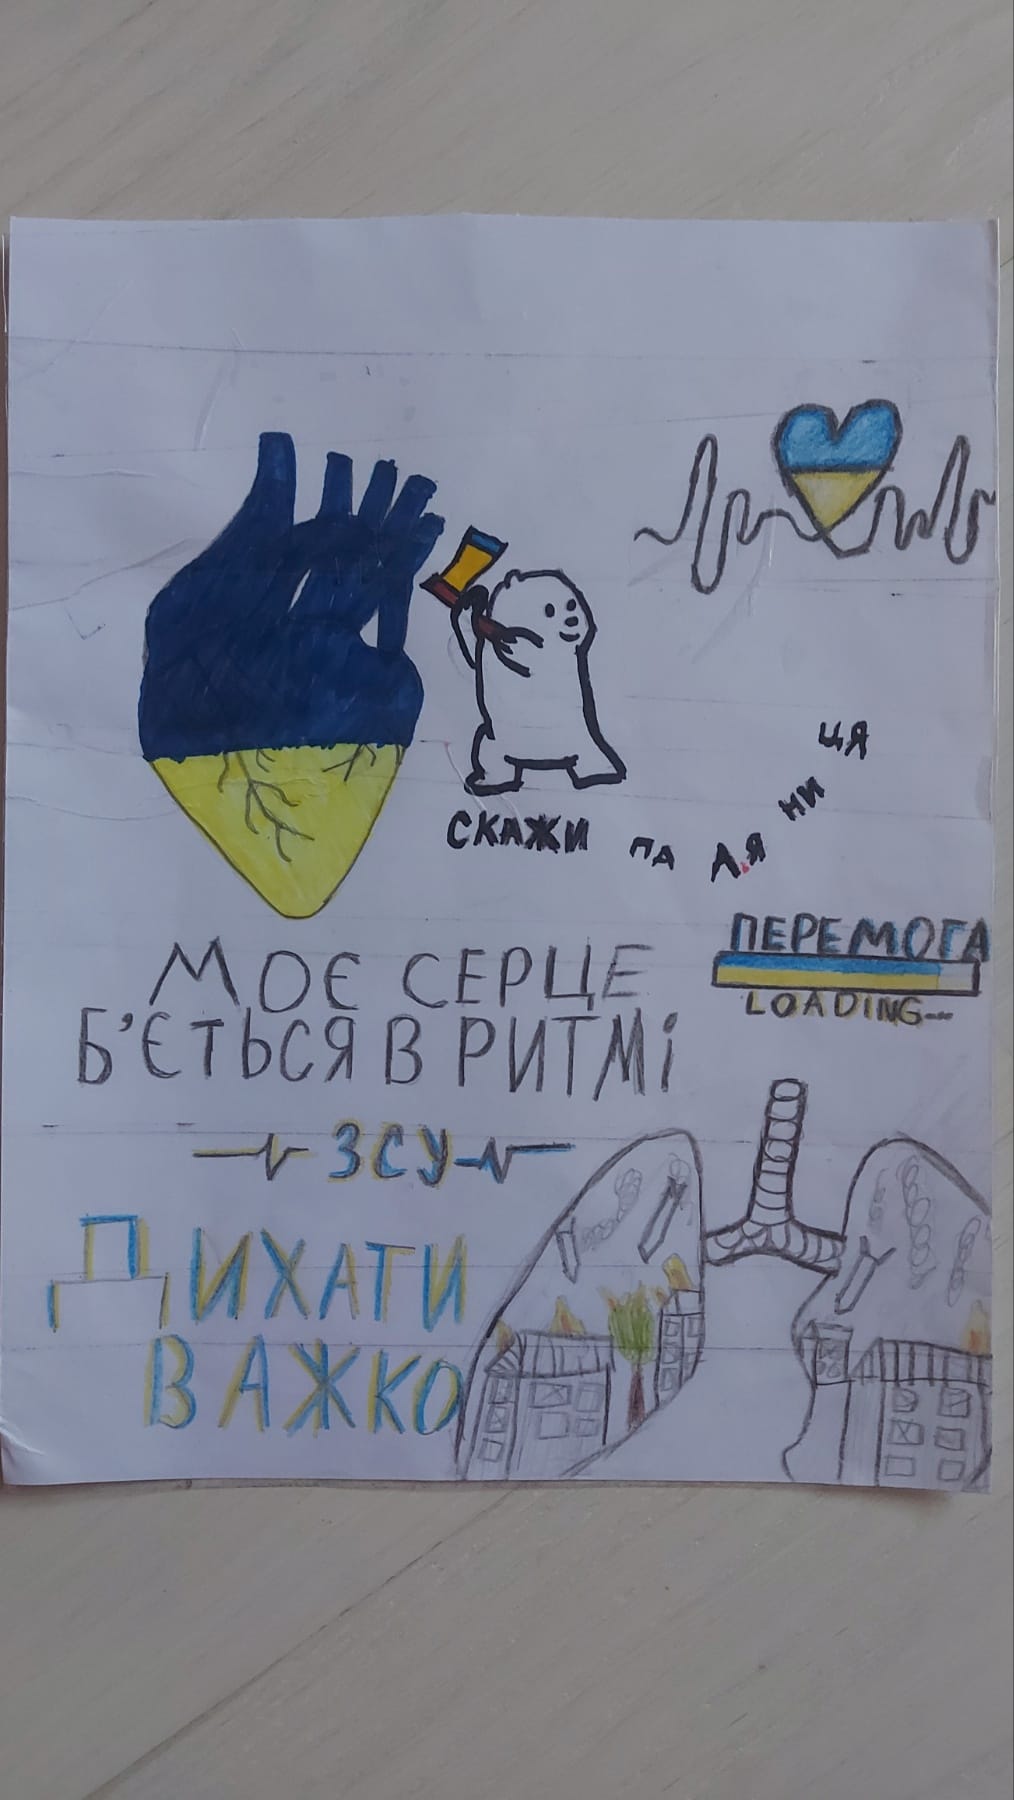 СКАЖИ ПА ЛЯ НИ ЦЯ
ПЕРЕМОГА
LOADING...
МОЄ СЕРЦЕ
Б'ЄТЬСЯ В РИТМІ
ЗСУ
ДИХАТИ
ВАЖКО